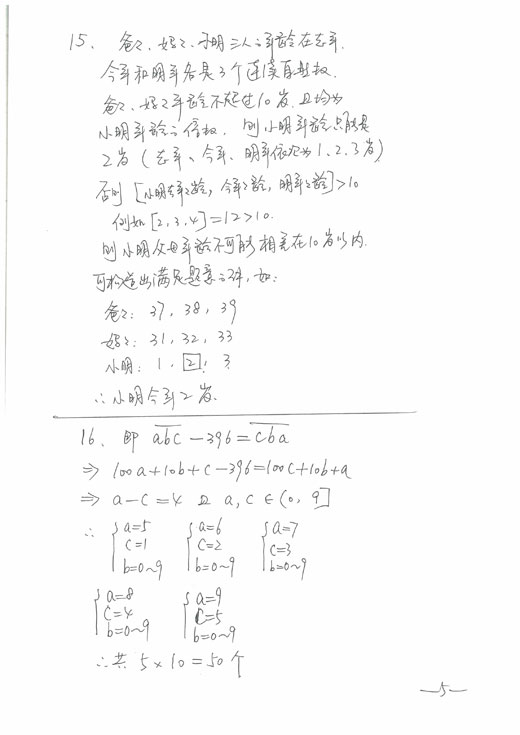 15、爸爸、妈妈、小明三人之年龄在去年、
今年和明年各是3个连续自然数.
爸爸、妈妈年龄不超过10岁,且均为
小明年龄之倍数. 则小明年龄只能是
2岁(去年、今年、明年依次为1、2、3岁)
否则[小明去年之龄,今年之龄,明年之龄]>10
例如[2,3,4]=12>10.
则小明父母年龄不可能相差在10岁以内.
可构造出满足题意之解,如:
爸爸: 37, 38, 39
妈妈: 31, 32, 33
小明: 1, 2, 3
∴小明今年2岁.
16、即 abc - 396 = cba
⇒ 100a+10b+c-396=100c+10b+a
⇒ a-c=4 且 a,c∈(0,9]
∴ { a=5 { a=6 { a=7
c=1 c=2 c=3
b=0~9 b=0~9 b=0~9
{ a=8 { a=9
c=4 c=5
b=0~9 b=0~9
∴共 5×10=50个
—5—